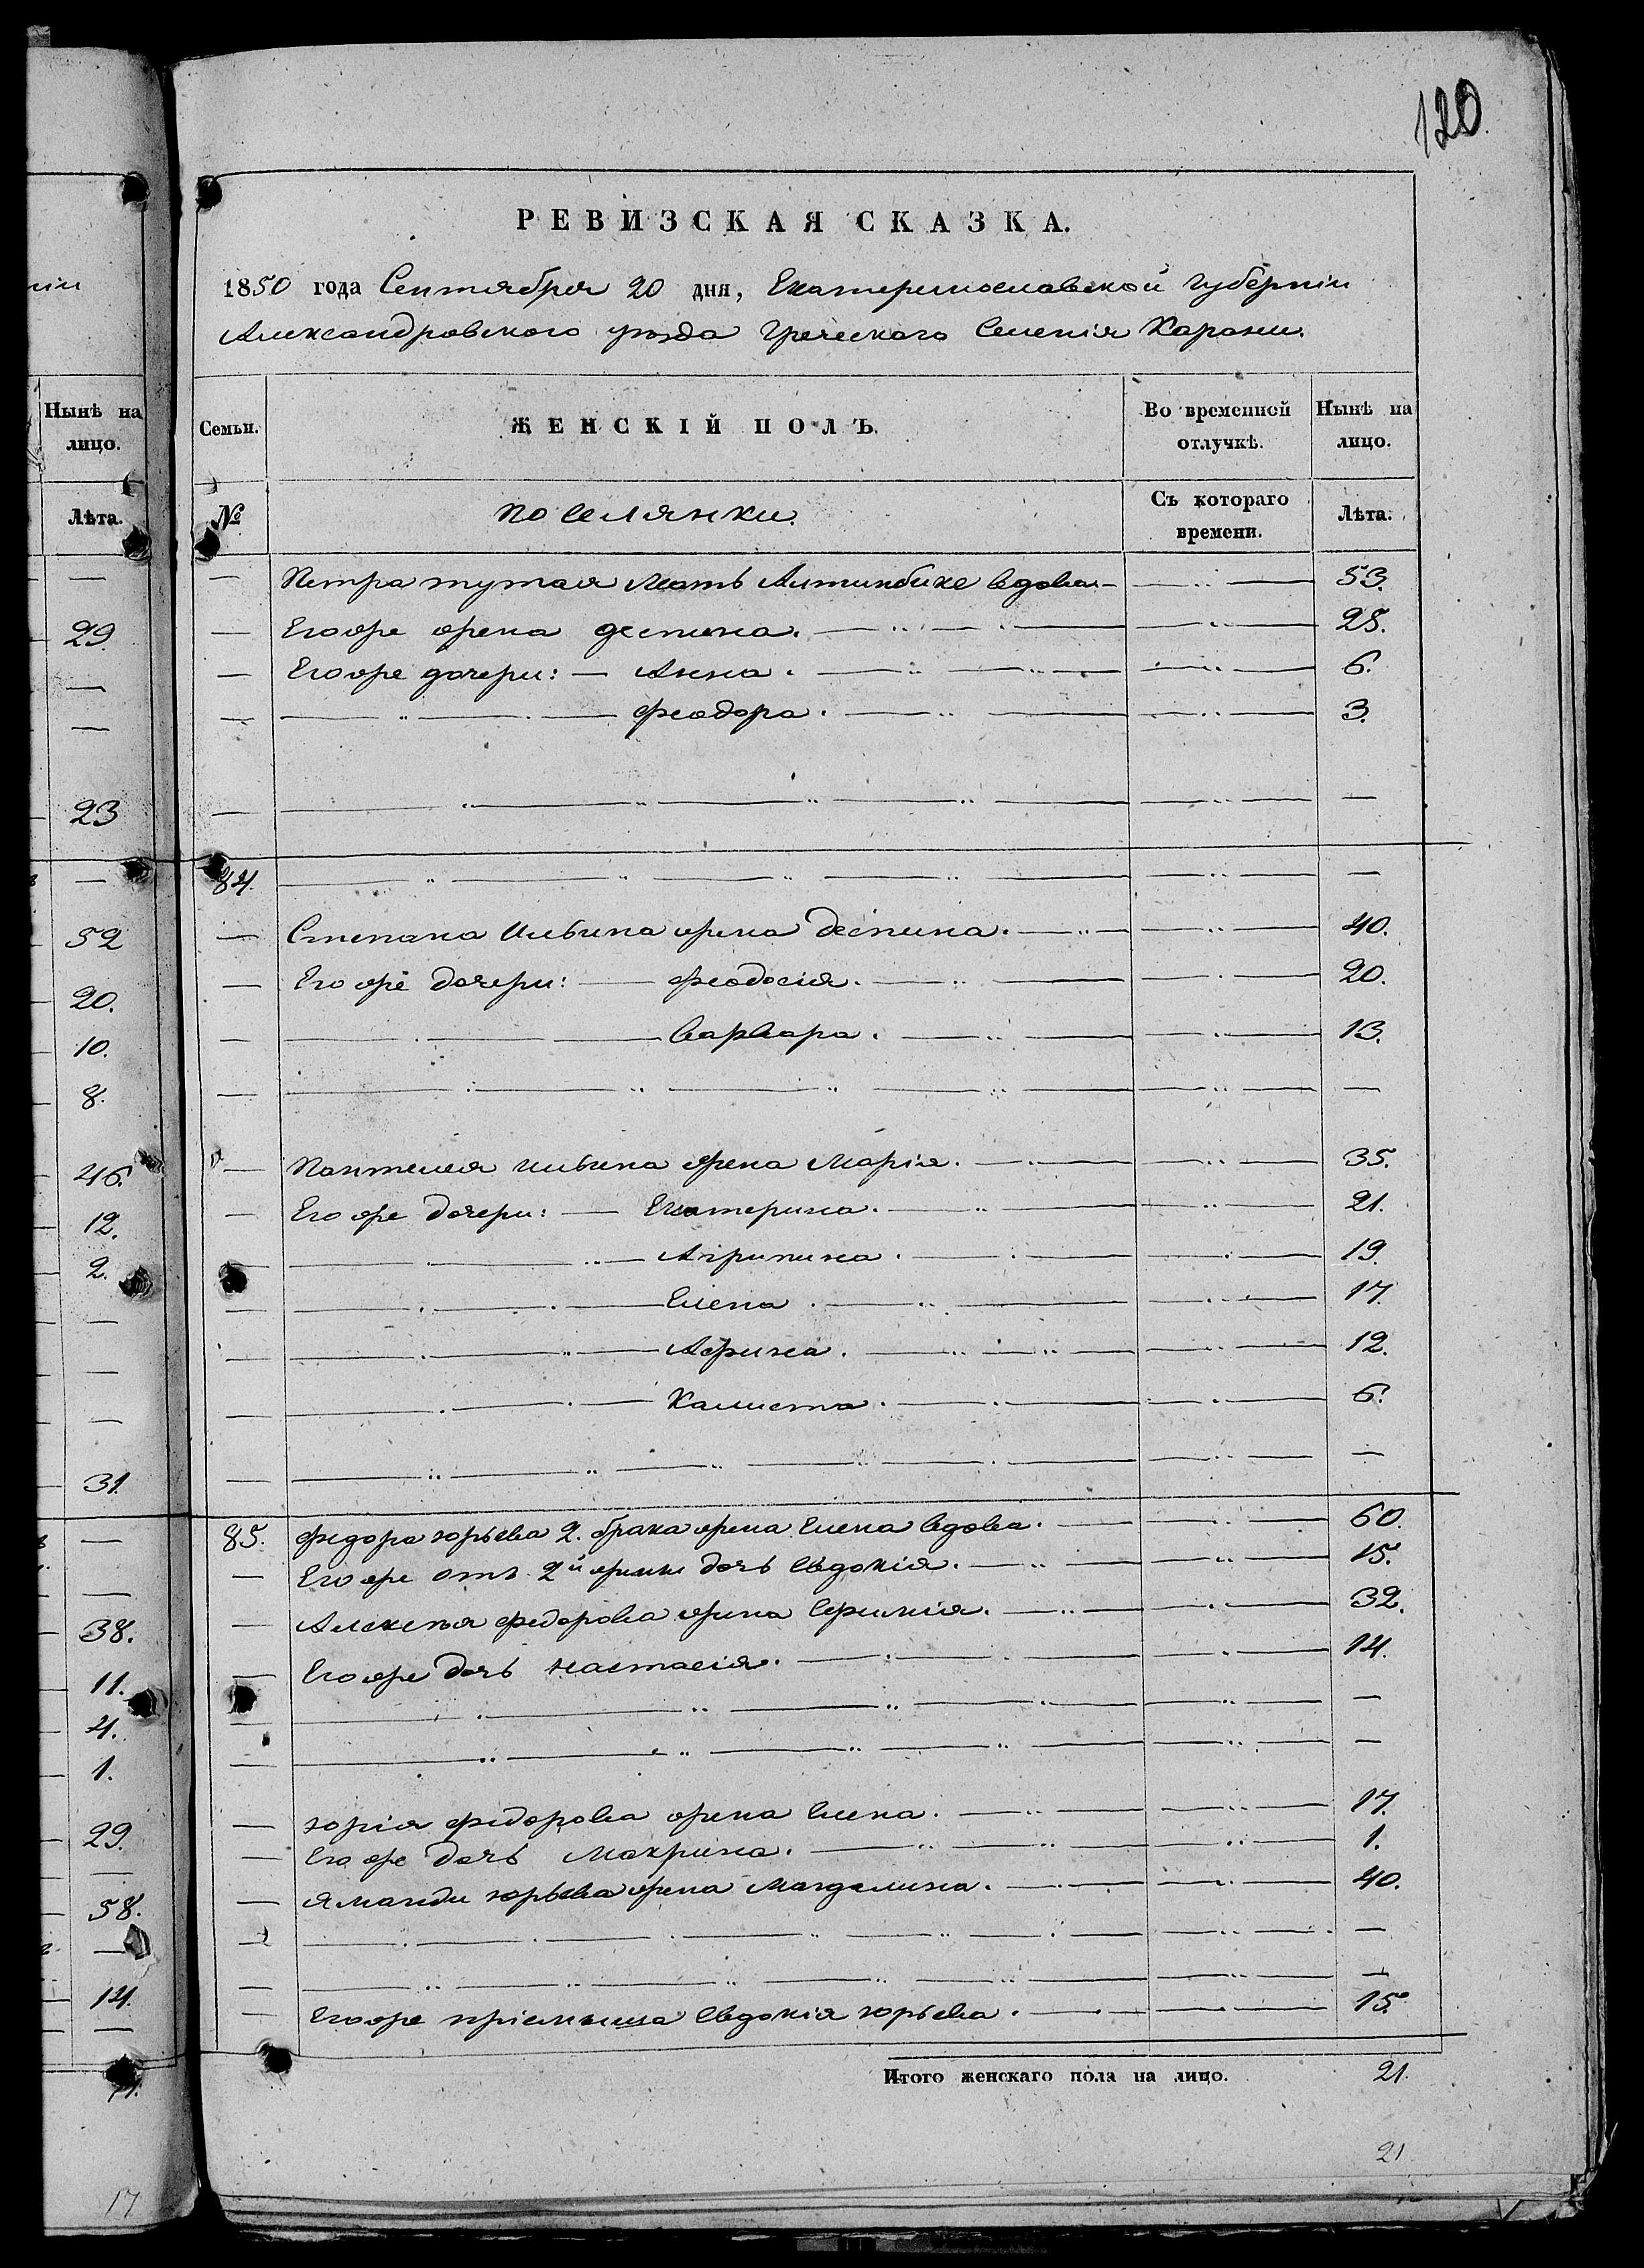 120.
РЕВИЗСКАЯ СКАЗКА.
1850 года Сентября 20 дня, Екатеринославской Губерніи
Александровского уѣзда Греческого Селенія Карани.
ніи
Нынѣ на
лицо.
Семьи.
ЖЕНСКІЙ ПОЛЪ.
Во временной
отлучкѣ.
Нынѣ на
лицо.
Лѣта.
№
поселянки.
Съ котораго
времени.
Лѣта.
— Петра мать Алтинбике вдова — 53.
29. — Его же жена деспина. — 28.
— Его же дочери: — Анна. — 6.
— Феодора. — 3.
23 — —
— 84. —
52 — Степана Ильина жена Деспина. — 40.
20. — Его же дочери: — Феодосія. — 20.
10. — Варвара. — 13.
8. — —
46. — Пантелея Ильина жена Марія. — 35.
12. — Его же дочери: — Екатерина. — 21.
2. — Агрипина. — 19.
— Елена. — 17.
— Афина. — 12.
— Калиста. — 6.
31. — —
— 85. Федора Юрьева 2. брака жена Елена вдова. — 60.
— Его же отъ 2й жены дочь Евдокія. — 15.
38. — Алексея Федорова жена — 32.
11. — Его же дочь Настасія. — 14.
4. — —
1. — —
29. — Юрія Федорова жена Елена. — 17.
— Его же дочь Макрина. — 1.
58. — Яманди Юрьева жена Магдалина. — 40.
— —
14. — —
— Его же пріемыша Евдокія Юрьева. — 15.
Итого женскаго пола на лицо. 21.
21
17